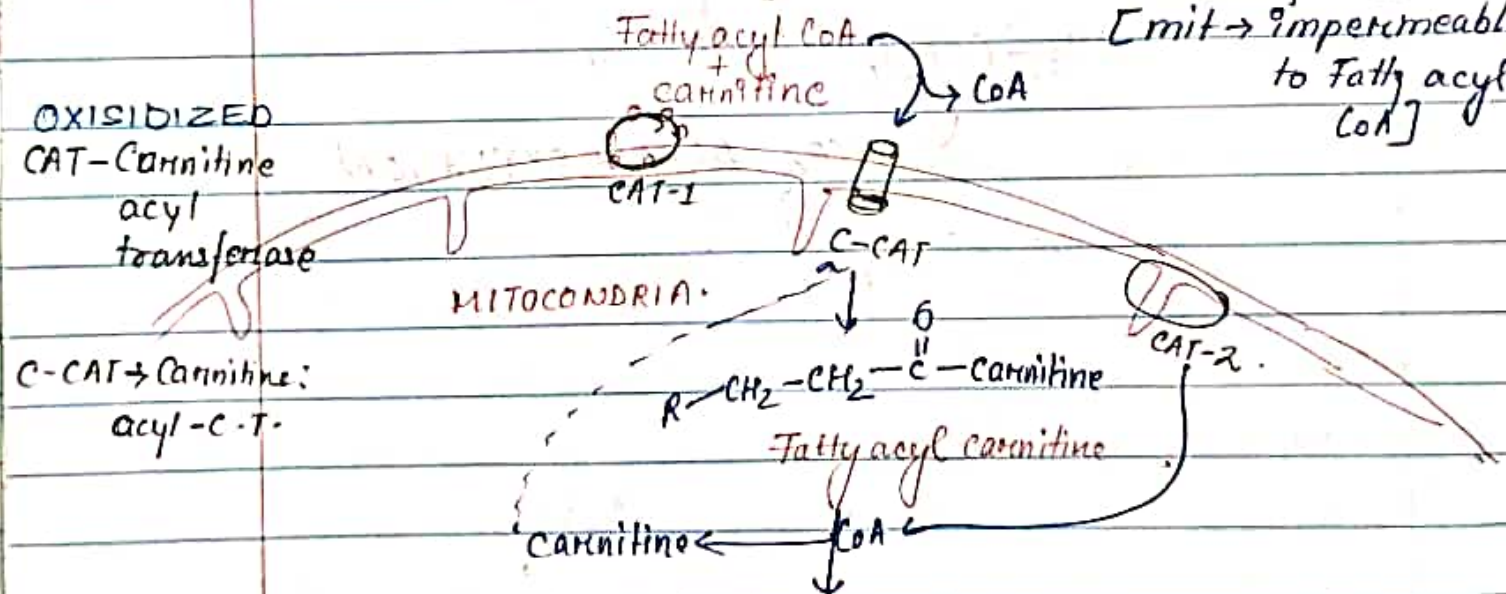 Fatty acyl CoA
+
carnitine
CoA
[mit → impermeabl
to Fatty acyl
CoA]
OXISIDIZED
CAT-Carnitine
acyl
transferase
CAT-1
C-CAT
MITOCONDRIA.
CAT-2.
C-CAT → Carnitine:
acyl-C.T.
O
||
R-CH₂-CH₂-C-Carnitine
Fatty acyl carnitine
Carnitine ← CoA